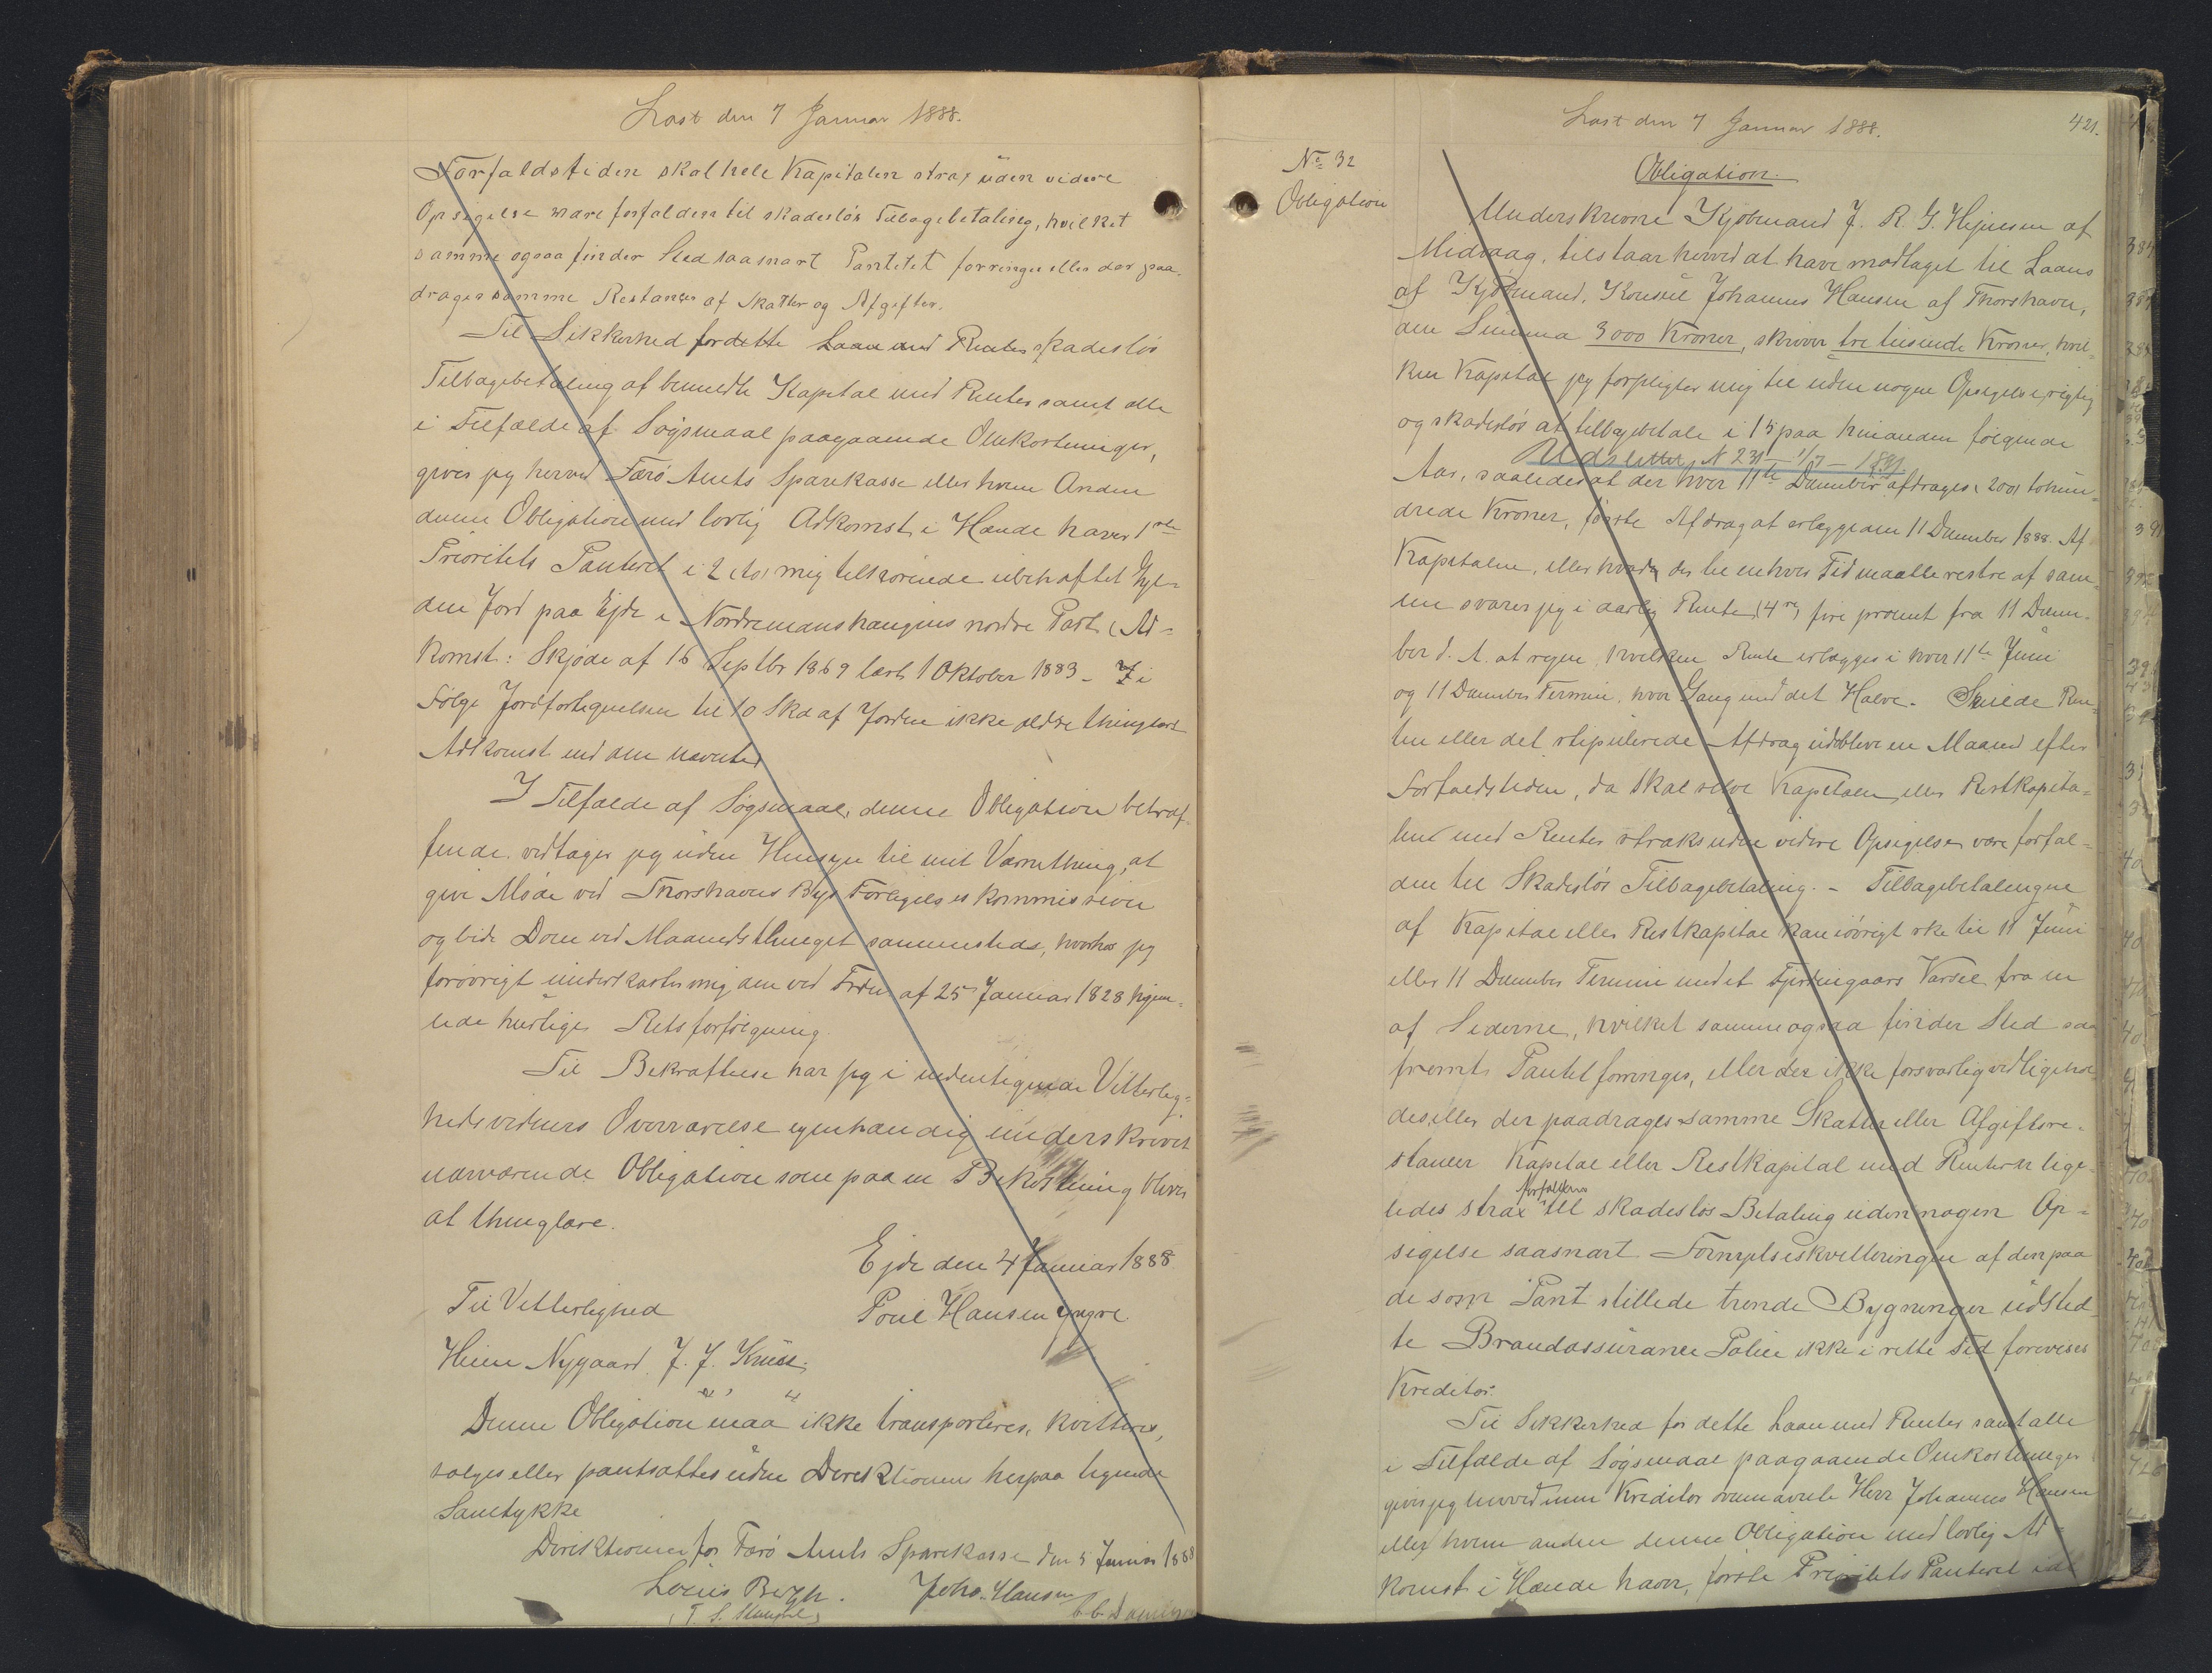 Læst den 7 Januar 1888.
Forfaldstiden skal hele Kapitalen strax uden videre
Opsigelse være forfalden til skadesløs Tilbagebetaling, hvilket
samme ogsaa finder Sted saasnart Pantetet forringes eller der paa-
drages samme Restancer af Skatter og Afgifter.
Til Sikkerhed for dette Laan med Renter skadesløs
Tilbagebetaling af bemeldte Kapital med Renter samt alle
i Tilfælde af Søgsmaal paagaaende Omkostninger,
giver jeg herved Færø Amts Sparekasse eller hvem Anden
denne Obligation med lovlig Adkomst i Hænde haver 1ste
Prioritets Panteret i 2 (to) mig tilhørende ubehæftet Gyl-
den Jord paa Ejde i Nordremanshaugins nordre Part (Ad-
komst: Skjøde af 16 Septbr 1869 læst 1 Oktober 1883 - I
Følge Jordfortegnelsen til 10 Skd af Jorden ikke ældre thinglæst
Adkomst end den nævnte)
I Tilfælde af Søgsmaal, denne Obligation betræf-
fende vedtager jeg uden Hensyn til mit Værnething, at
give Møde ved Thorshavns Byes Forligelses kommission
og lide Dom ved Maanedsthinget sammesteds, hvorhos jeg
forøvrigt underkaster mig den ved Frdn af 25 Januar 1828 hjem-
lede hurtige Retsforfølgning.
Til Bekræftelse har jeg i undertegnede Vitterlig-
hedsvidners Overværelse egenhændig underskrevet
nærværende Obligation som paa en Bekostning bliver
at thinglæse.
Ejde den 4 Januar 1888
Til Vitterlighed
Poul Hansen yngre.
Heine Nygaard. J. J. Kruse.
Denne Obligation maa ikke transporteres, kvitteres,
sælges eller pantsættes uden Direktionens herpaa tegnede
Samtykke
Direktionen for Færø Amts Sparekasse den 5 Januar 1888
Louis Bergh. Johs. Hansen
421.
Læst den 7 Januar 1888.
No 32
Obligation
Obligation.
Underskrevne Kjøbmand J. R. G. Hejnesen af
Midvaag, tilstaar herved at have modtaget til Laans
af Kjøbmand, Konsul Johannes Hansen af Thorshavn,
den Summa 3000 Kroner, skriver tre tusinde Kroner, hvil-
ken Kapital jeg forpligter mig til uden nogen Opsigelse, rigtig
og skadesløs at tilbagebetale i 15 paa hinanden følgende
Udslettet N 231
Aar, saaledes at der hver 11te December afdrages (200) tohun-
drede Kroner, første Afdrag at erlægge den 11 December 1888. Af
Kapitalen, eller hvad der til enhver Tid maatte restere af sam-
me svarer jeg i aarlig Rente (4 %) fire procent fra 11 Decem-
ber d. A. at regne, hvilken Rente erlægges i hver 11te Juni
og 11 December Termin, hver Gang med det Halve. Skulde Ren-
ten eller det stipulerede Afdrag udeblive en Maaned efter
Forfaldstiden, da skal selve Kapitalen, eller Restkapita-
len med Renter straks uden videre Opsigelse være forfal-
den til Skadesløs Tilbagebetaling. - Tilbagebetalingen
af Kapital eller Restkapital kan iøvrigt ske til 11 Juni
eller 11 December Termin med et Fjerdingaars Varsel fra en
af Siderne, hvilket samme ogsaa finder Sted saa
fremt Pantet forringes, eller der ikke forsvarlig vedligehol-
des, eller der paadrages samme Skatter eller Afgiftsre-
stancer Kapital eller Restkapital med Renter er lige-
ledes strax forfalden til skadesløs Betaling uden nogen Op-
sigelse saasnart Fornyelseskvitteringen af den paa
de som Pant stillede trende Bygninger udsted-
te Brandassurance Police ikke i rette Tid forevises
Kreditor.
Til Sikkerhed for dette Laan med Renter samt alle
i Tilfælde af Søgsmaal paagaaende Omkostninger
giver jeg herved min Kreditor ovennævnte Herr Johannes Hansen
eller hvem anden denne Obligation med lovlig Ad-
komst i Hænde haver, første Prioritets Panteret i